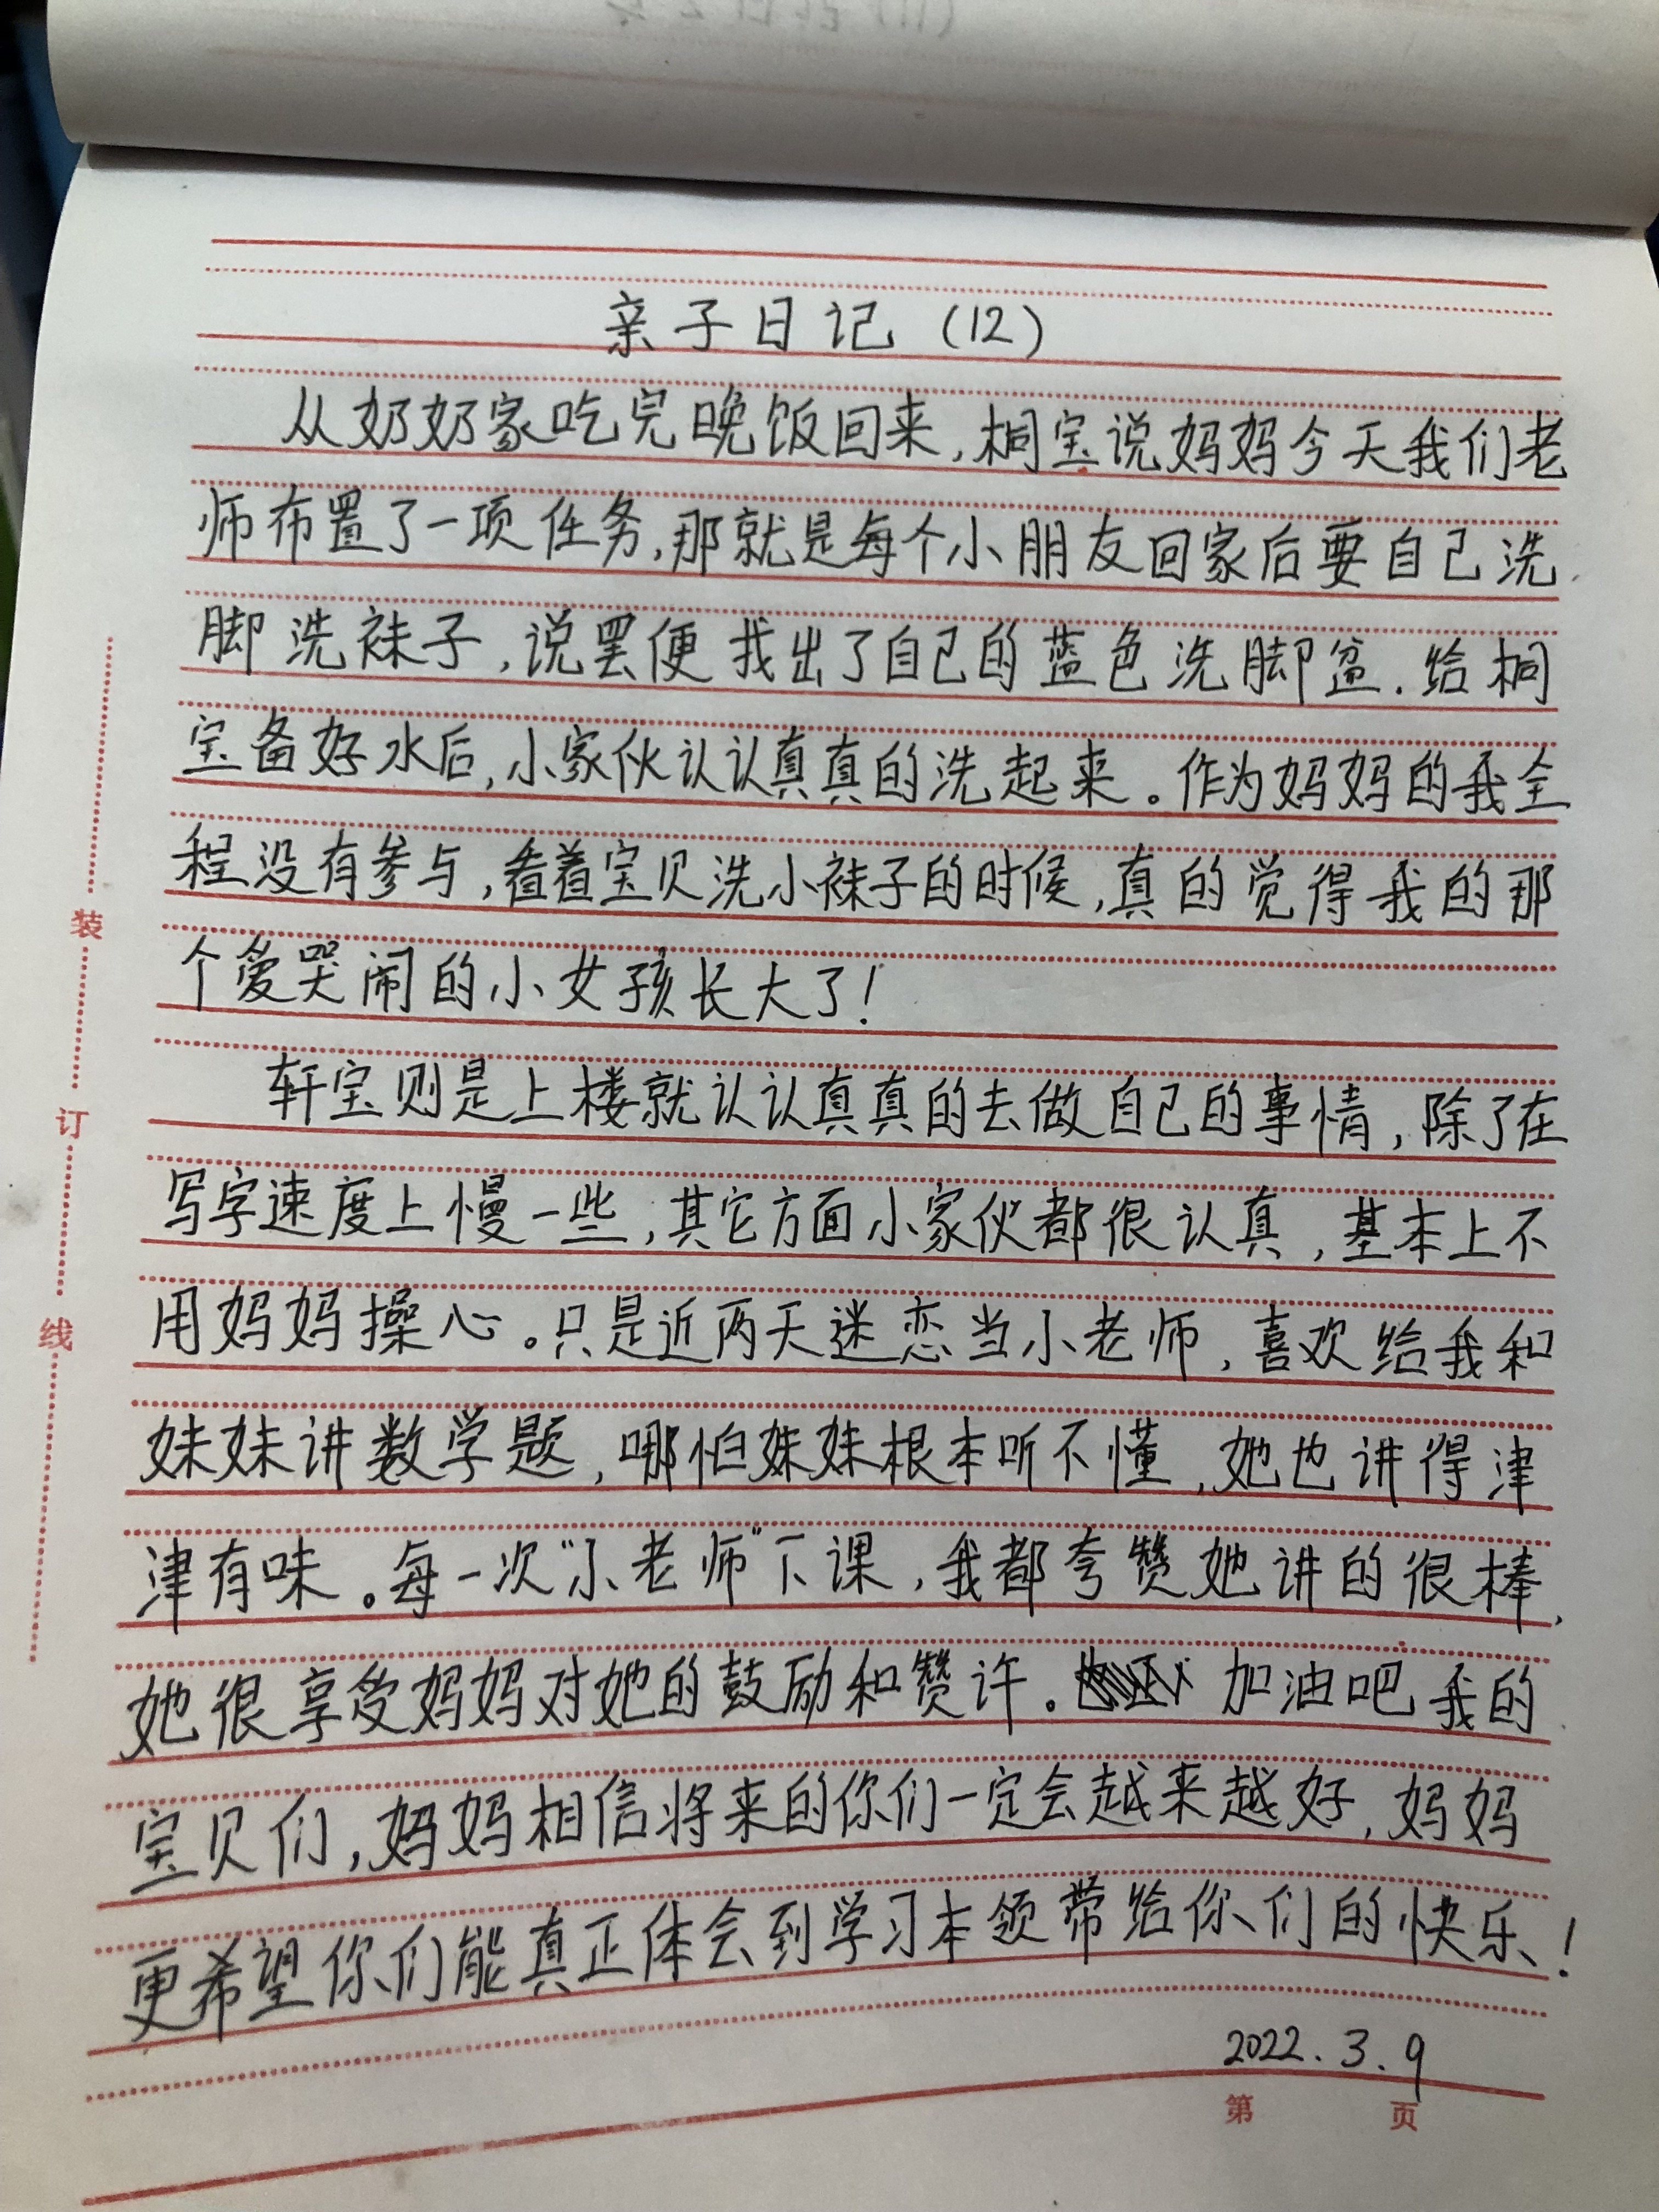 亲子日记(12)
从奶奶家吃完晚饭回来,桐宝说妈妈今天我们老
师布置了一项任务,那就是每个小朋友回家后要自己洗
脚洗袜子,说罢便找出了自己的蓝色洗脚盆.给桐
宝备好水后,小家伙认认真真的洗起来。作为妈妈的我全
程没有参与,看着宝贝洗小袜子的时候,真的觉得我的那
个爱哭闹的小女孩长大了!
轩宝则是上楼就认认真真的去做自己的事情,除了在
写字速度上慢一些,其它方面小家伙都很认真,基本上不
用妈妈操心。只是近两天迷恋当小老师,喜欢给我和
妹妹讲数学题,哪怕妹妹根本听不懂,她也讲得津
津有味。每一次“小老师”下课,我都夸赞她讲的很棒,
她很享受妈妈对她的鼓励和赞许。加油吧我的
宝贝们,妈妈相信将来的你们一定会越来越好,妈妈
更希望你们能真正体会到学习本领带给你们的快乐!
2022.3.9
第 页
装
订
线